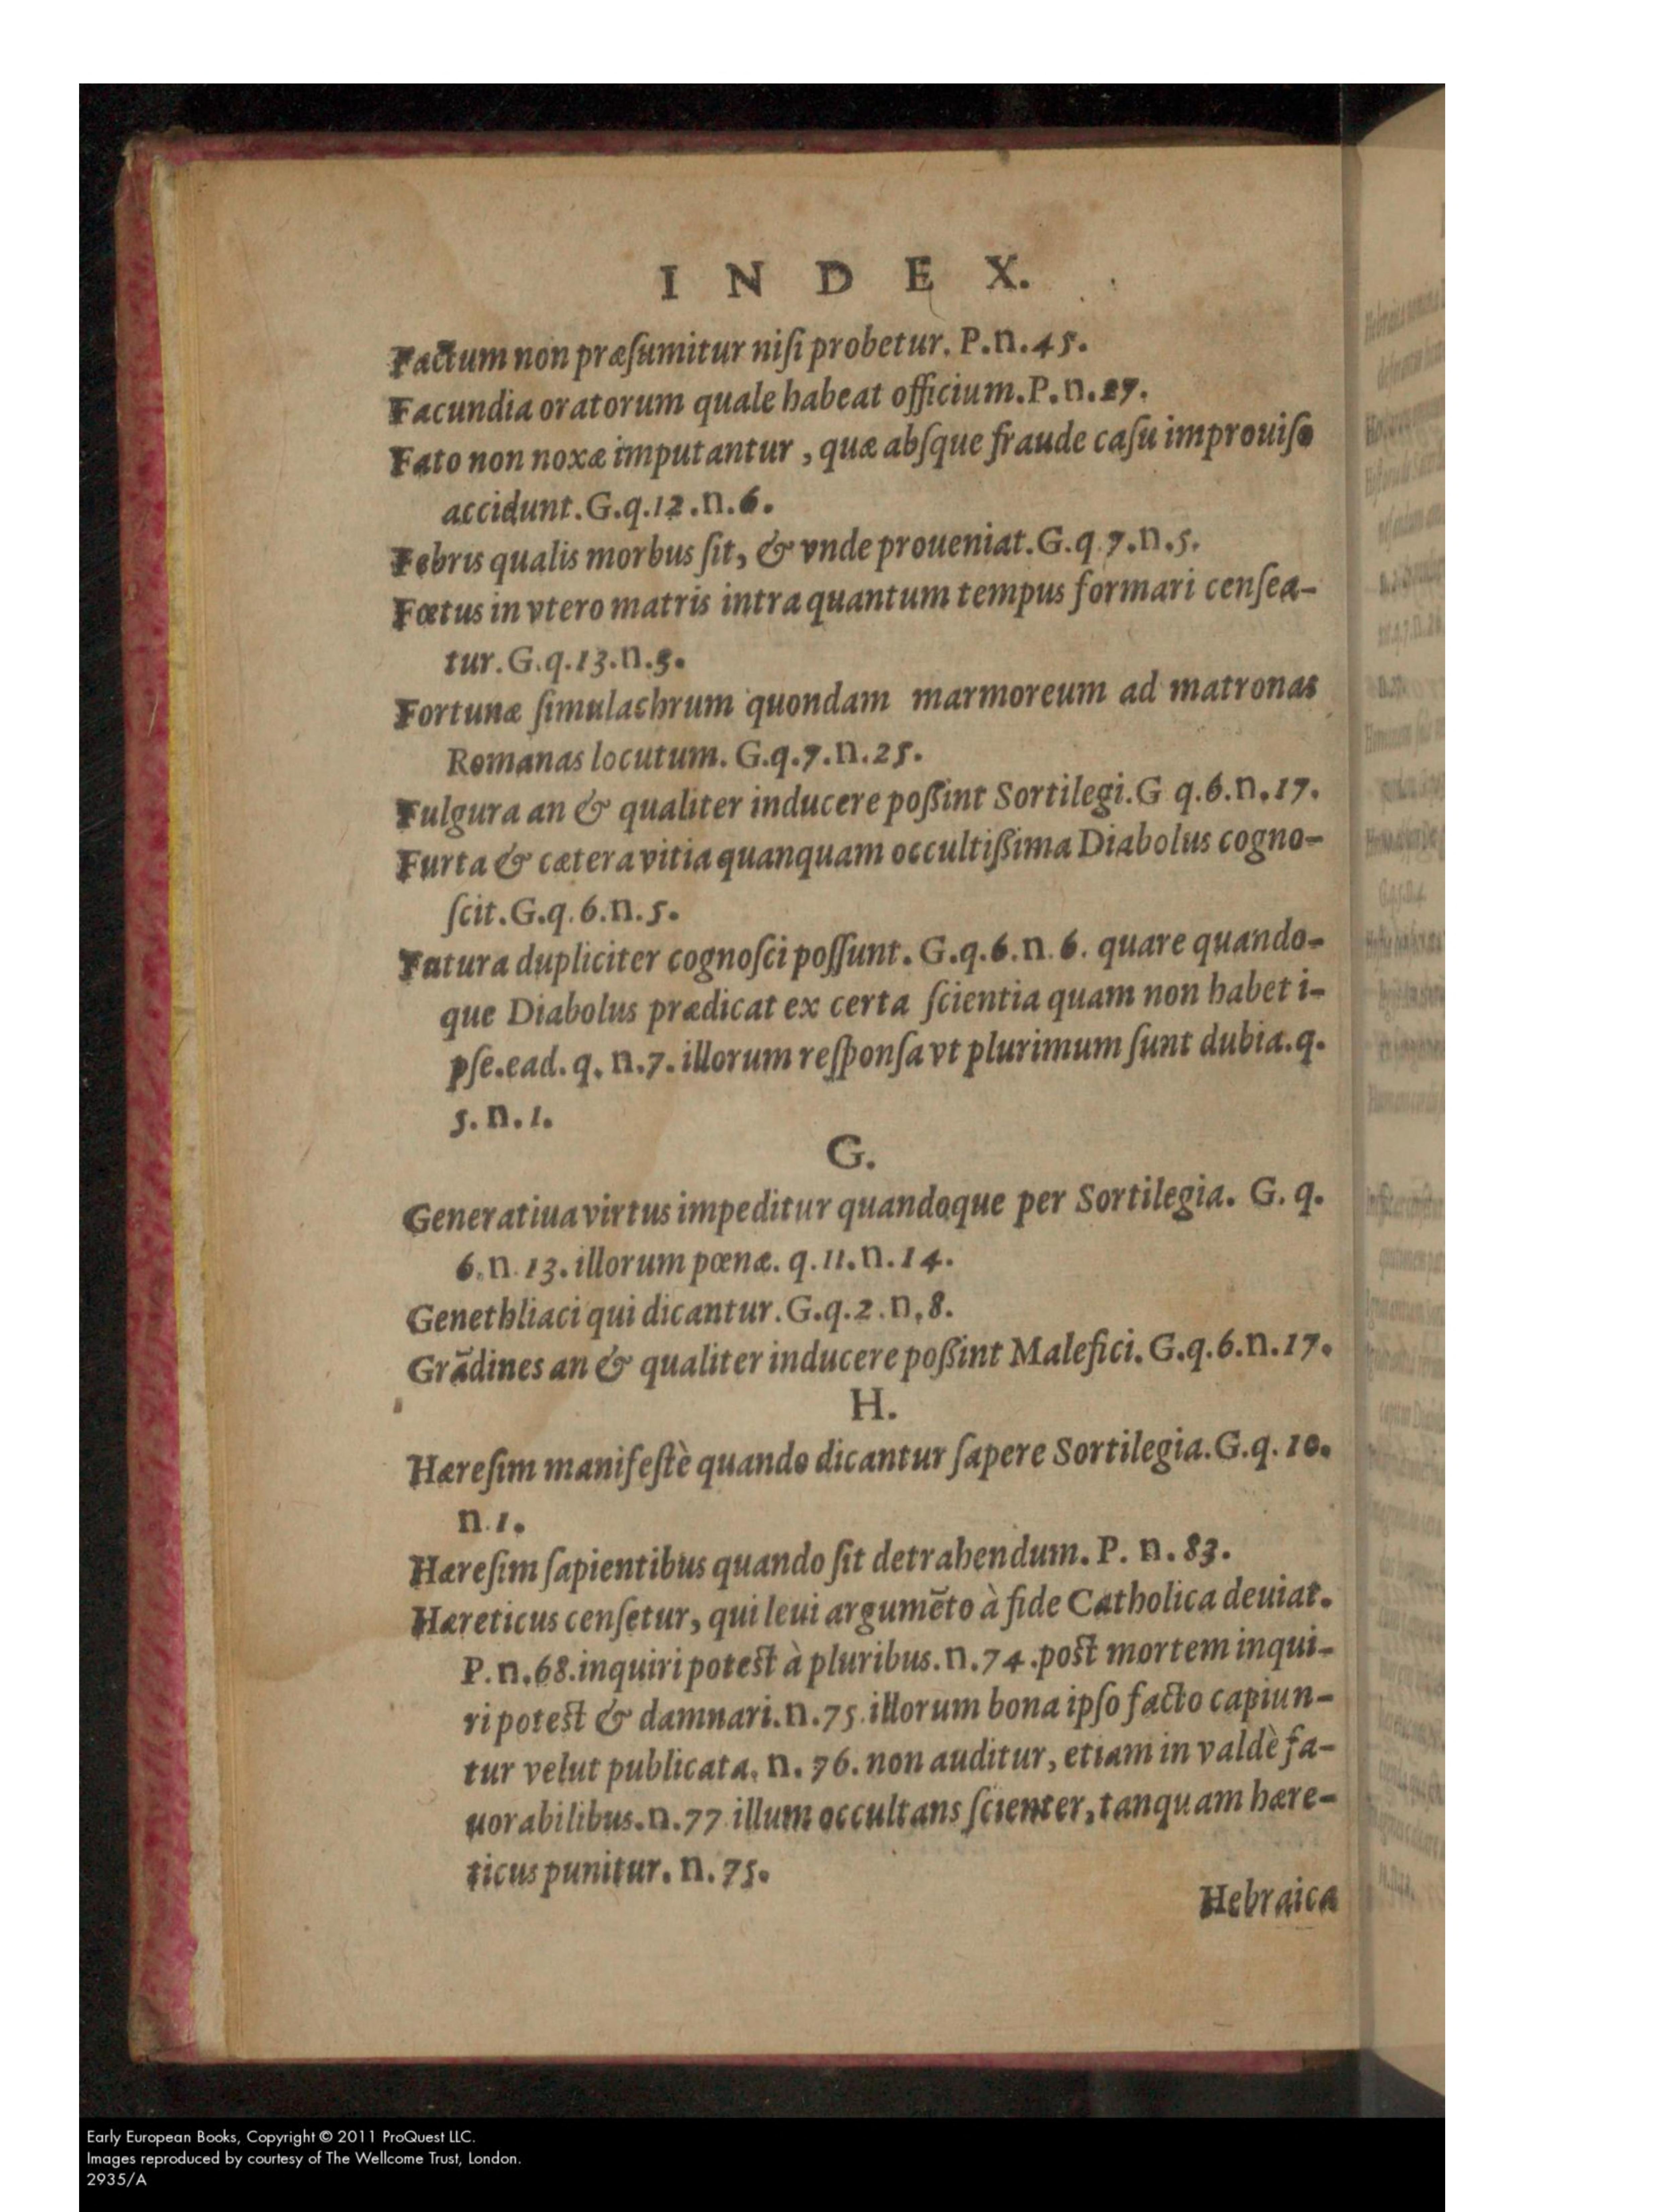 INDEX.
Factum non præſumitur niſi probetur. P.n.45.
Facundia oratorum quale habeat officium.P.n.27.
Fato non noxæ imputantur, quæ abſque fraude caſu improuiſo
accidunt.G.q.12.n.6.
Febris qualis morbus ſit, & vnde proueniat.G.q 7.n.5.
Fœtus in vtero matris intra quantum tempus formari cenſea-
tur.G.q.13.n.3.
Fortunæ ſimulachrum quondam marmoreum ad matronas
Romanas locutum. G.q.7.n.25.
Fulgura an & qualiter inducere poßint Sortilegi.G q.6.n.17.
Furta & cætera vitia quanquam occultißima Diabolus cogno-
ſcit.G.q.6.n.5.
Futura dupliciter cognoſci poſſunt. G.q.6.n.6. quare quando-
que Diabolus prædicat ex certa ſcientia quam non habet i-
pſe.ead.q. n.7. illorum reſponſa vt plurimum ſunt dubia.q.
5.n.1.
G.
Generatiua virtus impeditur quandoque per Sortilegia. G. q.
6.n.13. illorum pœnæ. q.11.n.14.
Genethliaci qui dicantur.G.q.2.n.8.
Grãdines an & qualiter inducere poßint Malefici.G.q.6.n.17.
H.
Hæreſim manifeſtè quando dicantur ſapere Sortilegia.G.q.10.
n.1.
Hæreſim ſapientibus quando ſit detrahendum. P. n.83.
Hæreticus cenſetur, qui leui argumẽto à fide Catholica deuiat.
P.n.68.inquiri poteſt à pluribus.n.74.poſt mortem inqui-
ri poteſt & damnari.n.75.illorum bona ipſo facto capiun-
tur velut publicata. n.76. non auditur, etiam in valdè fa-
uorabilibus.n.77 illum occultans ſcienter, tanquam hære-
ticus punitur. n.75.
Hebraica
Early European Books, Copyright © 2011 ProQuest LLC.
Images reproduced by courtesy of The Wellcome Trust, London.
2935/A